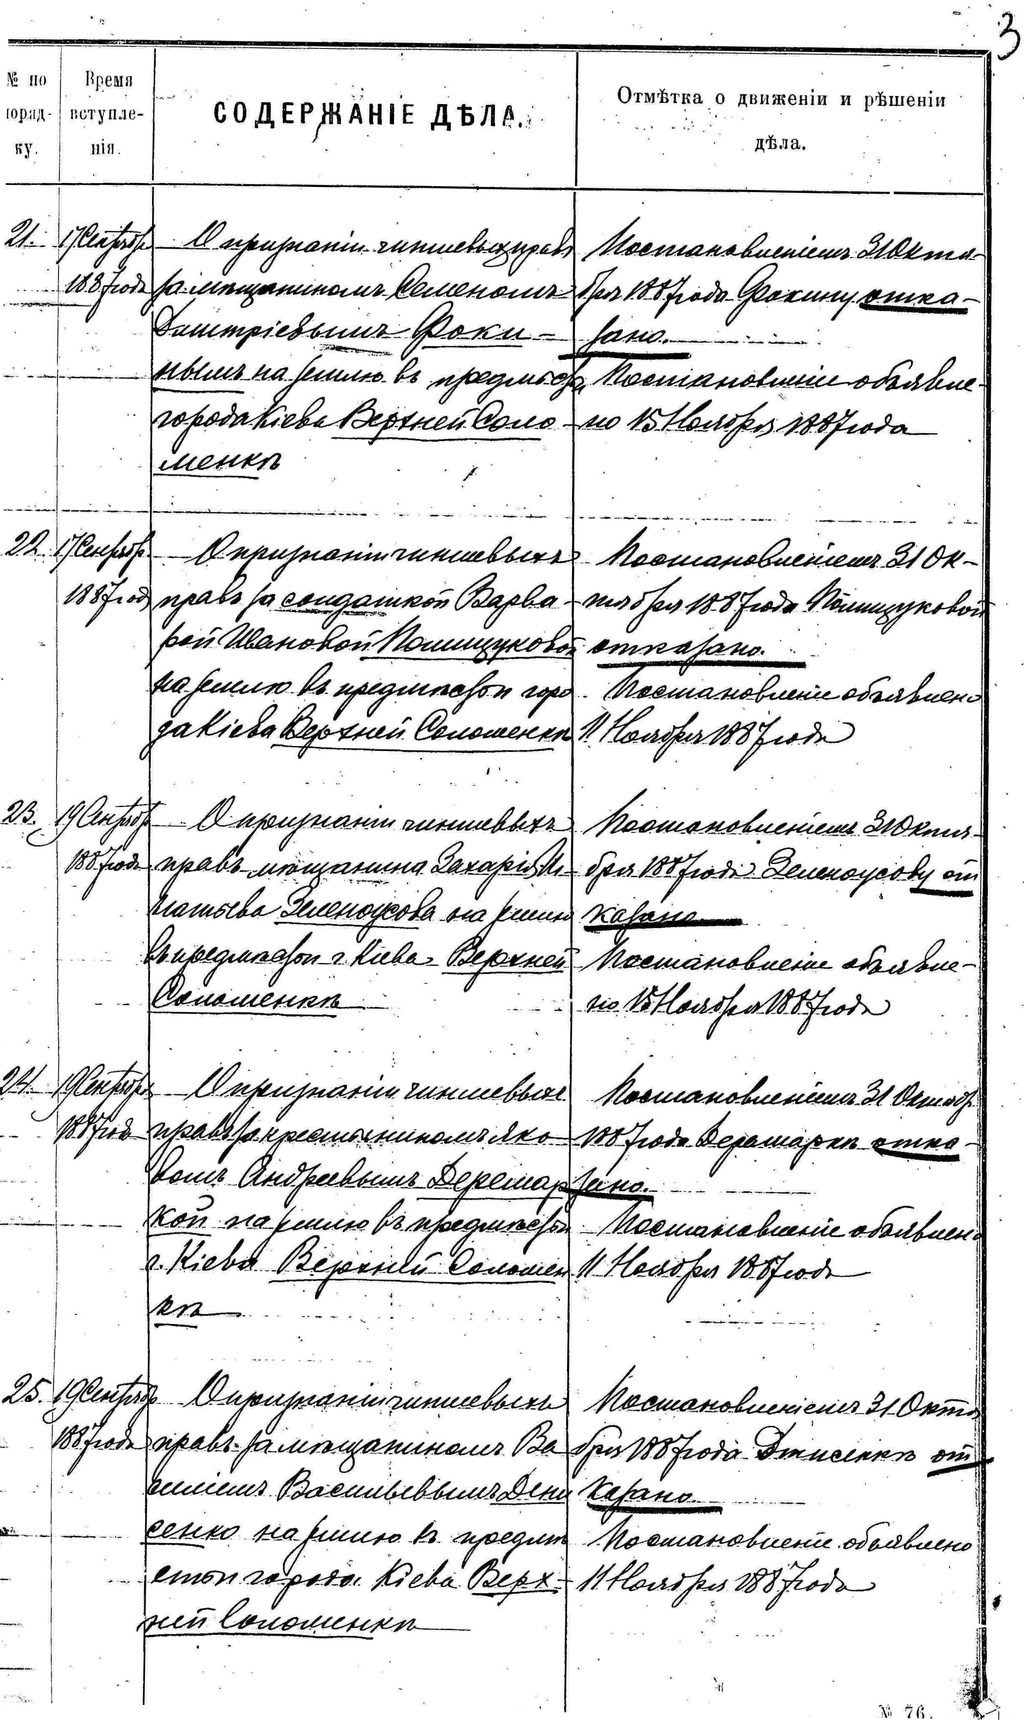 3
№ по поряд-ку.
Время вступле-нія.
СОДЕРЖАНІЕ ДѢЛА.
Отмѣтка о движеніи и рѣшеніи дѣла.
21. 17 Сентября 1887 года
О признаніи чиншевыхъ правъ
за мѣщаниномъ Семеномъ
Дмитріевымъ Фоки-
нымъ на землю въ предмѣстьи
города Кіева Верхней Соло-
менкѣ
Постановленіемъ 31 Октя-
бря 1887 года Фокину отка-
зано.
Постановленіе объявле-
но 15 Ноября 1887 года
22. 17 Сентября 1887 год
О признаніи чиншевыхъ
правъ за солдаткой Варва-
рой Ивановой Полищуковой
на землю въ предмѣстьи горо
да Кіева Верхней Соломенкѣ
Постановленіемъ 31 Ок-
тября 1887 года Полищуковой
отказано.
Постановленіе объявлено
11 Ноября 1887 года
23. 19 Сентября 1887 года
О признаніи чиншевыхъ
правъ мѣщанина Захарія Иг-
натьева Зеленоусова на землю
въ предмѣстьи г. Кіева Верхней
Соломенкѣ
Постановленіемъ 31 Октя-
бря 1887 года Зеленоусову от
казано
Постановленіе объявле-
но 15 Ноября 1887 года
24. 19 Сентября 1887 год
О признаніи чиншевыхъ
правъ за крестьяниномъ Яко-
вомъ Андреевымъ Деремар
кой на землю въ предмѣстьи
г. Кіева Верхней Соломен
кѣ
Постановленіемъ 31 Октябр
1887 года Деремаркѣ отка-
зано.
Постановленіе объявлено
11 Ноября 1887 года
25. 19 Сентября 1887 года
О признаніи чиншевыхъ
правъ за мѣщаниномъ Ва
силіемъ Васильевымъ Дени
сенко на землю въ предмѣ
стьи города Кіева Верх-
ней Соломенкѣ
Постановленіемъ 31 Октя
бря 1887 года Денисенкѣ от
казано
Постановленіе объявлено
11 Ноября 1887 года
№ 76.